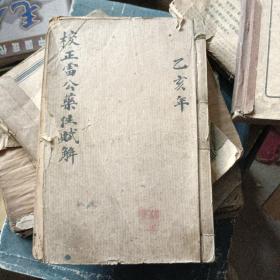 校正雷公藥性賦解
乙亥年